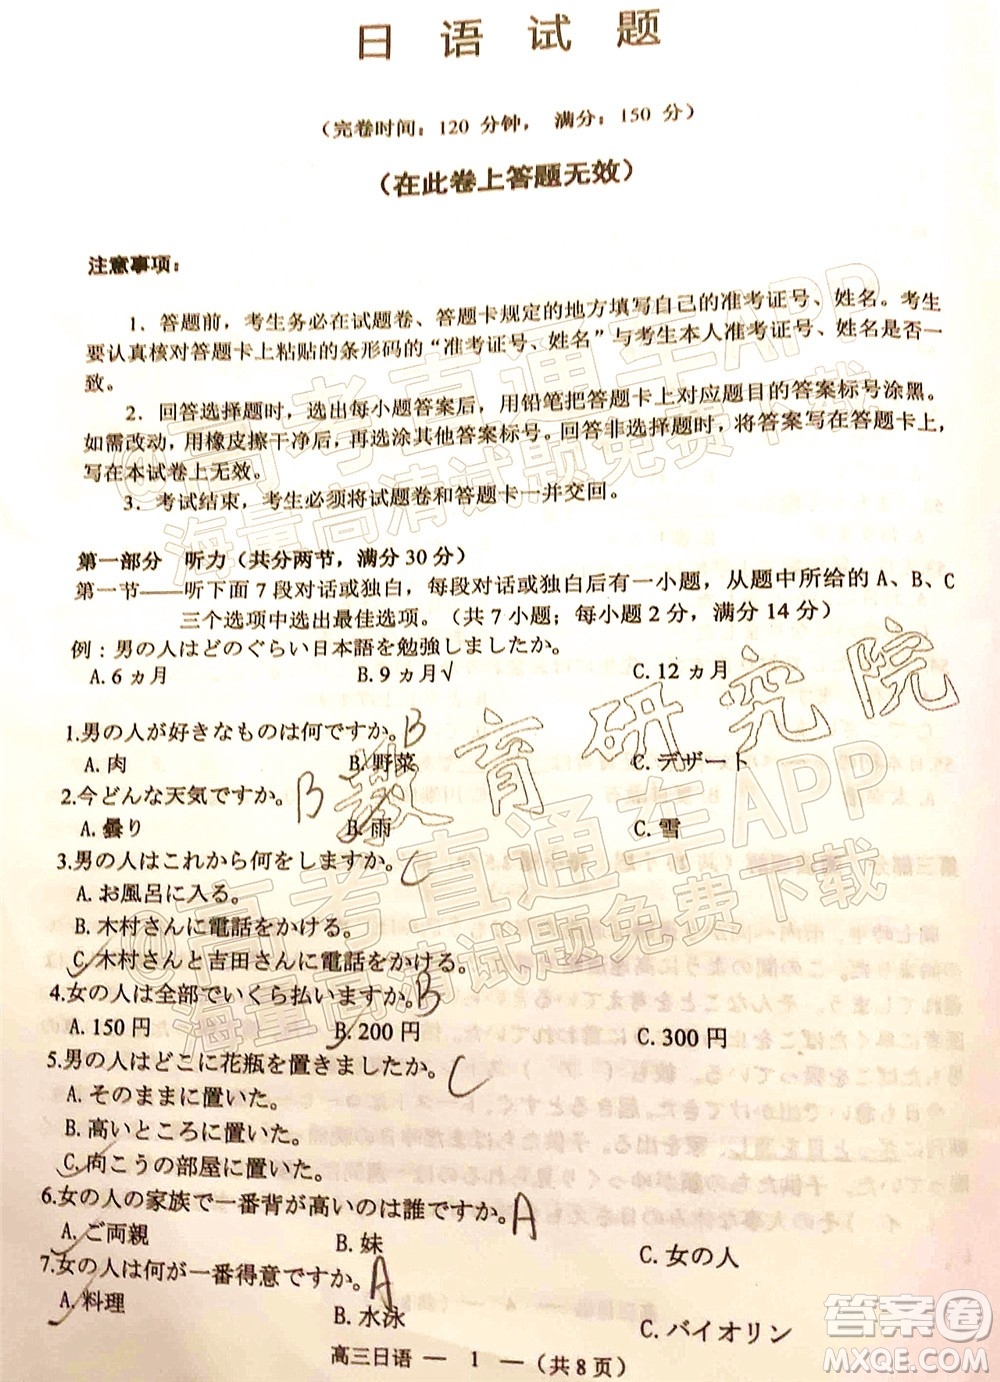 日语试题
（完卷时间：120 分钟，满分：150 分）
（在此卷上答题无效）
注意事项：
1．答题前，考生务必在试题卷、答题卡规定的地方填写自己的准考证号、姓名。考生
要认真核对答题卡上粘贴的条形码的“准考证号、姓名”与考生本人准考证号、姓名是否一
致。
2．回答选择题时，选出每小题答案后，用铅笔把答题卡上对应题目的答案标号涂黑。
如需改动，用橡皮擦干净后，再选涂其他答案标号。回答非选择题时，将答案写在答题卡上，
写在本试卷上无效。
3．考试结束，考生必须将试题卷和答题卡一并交回。
第一部分　听力（共分两节，满分 30 分）
第一节——听下面 7 段对话或独白，每段对话或独白后有一小题，从题中所给的 A、B、C
三个选项中选出最佳选项。（共 7 小题；每小题 2 分，满分 14 分）
例：男の人はどのぐらい日本語を勉強しましたか。
A. 6 ヵ月 B. 9 ヵ月√ C. 12 ヵ月
1.男の人が好きなものは何ですか。 B
A. 肉 B. 野菜 C. デザート
2.今どんな天気ですか。 B
A. 曇り B. 雨 C. 雪
3.男の人はこれから何をしますか。 C
A. お風呂に入る。
B. 木村さんに電話をかける。
C. 木村さんと吉田さんに電話をかける。
4.女の人は全部でいくら払いますか。 B
A. 150 円 B. 200 円 C. 300 円
5.男の人はどこに花瓶を置きましたか。 C
A. そのままに置いた。
B. 高いところに置いた。
C. 向こうの部屋に置いた。
6.女の人の家族で一番背が高いのは誰ですか。 A
A. ご両親 B. 妹 C. 女の人
7.女の人は何が一番得意ですか。 A
A. 料理 B. 水泳 C. バイオリン
高三日语 — 1 — （共 8 页）
教育研究院
@高考直通车APP
海量高清试题免费下载
@高考直通车APP
海量高清试题免费下载
答案圈
MXQE.COM